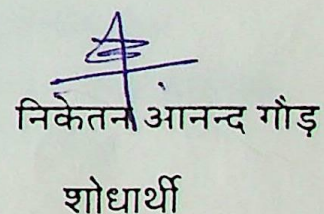 निकेतन आनन्द गौड़
शोधार्थी